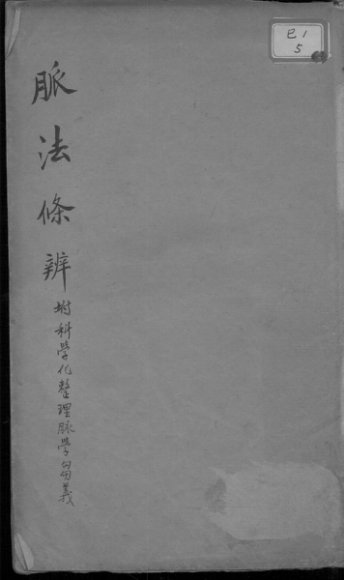 脈法條辨
坿科學化整理脉學芻義
巳1
5